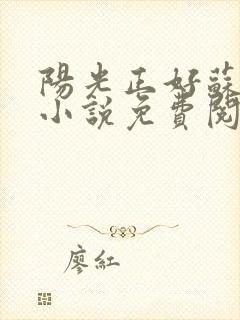 陽光正好蘇
小說免費閱
廖紅